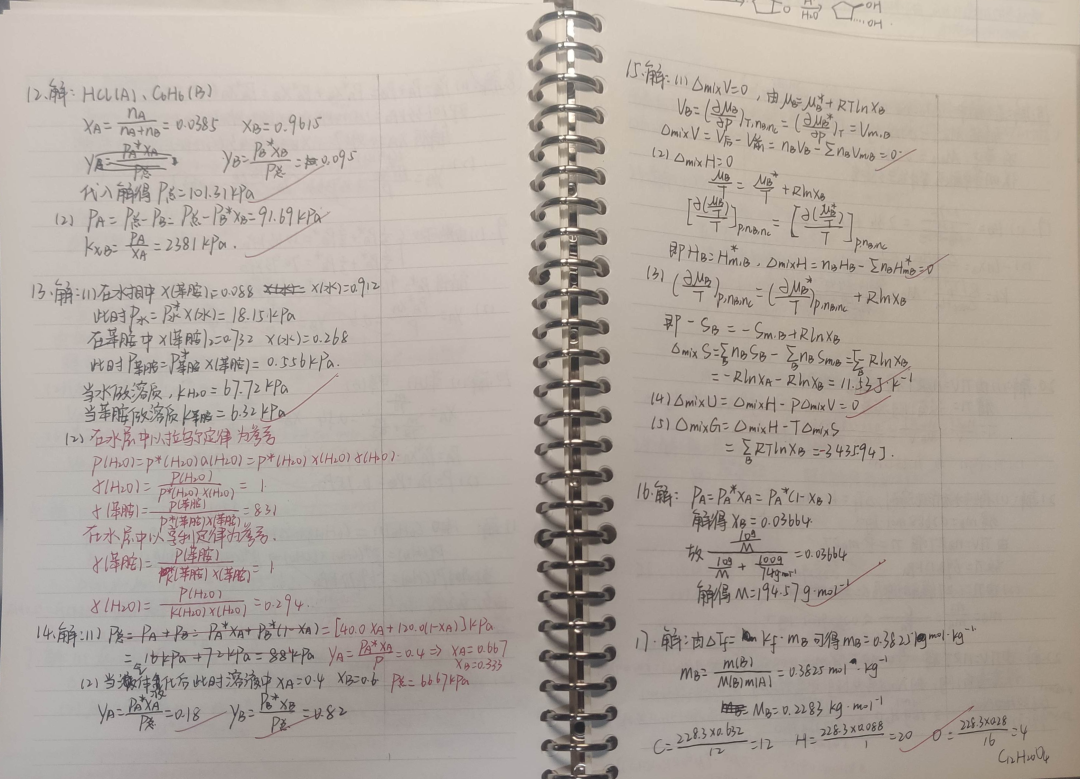 12.解：HCl(A)、C6H6(B)
xA=nA/(nA+nB)=0.0385 xB=0.9615
yB=PB*xB/P总=0.095
代入解得P总=101.31kPa
(2) PA=P总-PB=P总-PB*xB=91.69kPa
kx,B=PA/xA=2381kPa.
13.解：(1)在水相中x(苯胺)=0.088 x(水)=0.912
此时P水=P水*x(水)=18.15kPa
在苯胺中x(苯胺)=0.732 x(水)=0.268
此时P苯胺=P苯胺*x(苯胺)=0.556kPa.
当水做溶质，kH2O=67.72kPa
当苯胺做溶质k苯胺=6.32kPa
(2)在水层中以拉乌尔定律为参考
P(H2O)=P*(H2O)a(H2O)=P*(H2O)x(H2O)γ(H2O).
γ(H2O)=P(H2O)/P*(H2O)x(H2O)=1
γ(苯胺)=P(苯胺)/P*(苯胺)x(苯胺)=8.31
在水层中以亨利定律为参考.
γ(苯胺)=P(苯胺)/(苯胺)x(苯胺)=1
γ(H2O)=P(H2O)/K(H2O)x(H2O)=0.294.
14.解：(1) P总=PA+PB=PA*xA+PB*(1-xA)=[40.0xA+120.0(1-xA)]kPa
=16kPa+72kPa=88kPa yA=PA*xA/P=0.4⇒xA=0.667
xB=0.333
(2)当气体液化后此时溶液中xA=0.4 xB=0.6 P总=66.67kPa
yA=PA*xA/P总=0.18 yB=PB*xB/P总=0.82
OH
H2O
OH
15.解：(1)ΔmixV=0，由μB=μB*+RTlnxB
VB=(∂μB/∂P)T,nB,nC=(∂μB*/∂P)T=Vm.B
ΔmixV=V后-V前=nBVB-ΣnBVm,B=0
(2)ΔmixH=0
μB/T=μB*/T+RlnxB
[∂(μB/T)/T]P,nB,nC=[∂(μB*/T)/T]P,nB,nC
即HB=H*m.B，ΔmixH=nBHB-ΣnBH*mB=0
(3) (∂μB/T)P,nB,nC=(∂μB*/T)P,nB,nC+RlnxB
即-SB=-Sm.B+RlnxB
ΔmixS=ΣB nBSB-ΣB nBSmB=ΣB RlnxB
=-RlnxA-RlnxB=11.53J·K⁻¹
(4)ΔmixU=ΔmixH-PΔmixV=0
(5)ΔmixG=ΔmixH-TΔmixS
=ΣB RTlnxB=-3435.94J.
16.解：PA=PA*xA=PA*(1-xB)
解得xB=0.03664.
故 (10g/M)/(10g/M+100g/74g·mol⁻¹)=0.03664
解得M=194.57g·mol⁻¹
17.解：由ΔTf=kf·mB可得mB=0.3825mol·kg⁻¹
mB=m(B)/M(B)m(A)=0.3825mol·kg⁻¹
MB=0.2283kg·mol⁻¹
C=228.3×0.632/12=12 H=228.3×0.088/1=20 O=228.3×0.28/16=4
C12H20O4